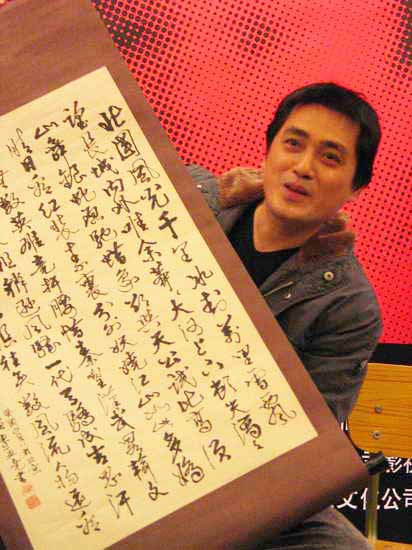 北國風光千里冰封萬里雪飄
望長城內外唯余莽莽大河上下頓失滔滔
山舞銀蛇原馳蠟象欲與天公試比高須
晴日看紅裝素裹分外妖嬈江山如此多嬌
無數英雄競折腰惜秦皇漢武略輸文
稍遜風騷一代天驕成吉思汗
俱往矣數風流人物還看
影視
文化公司